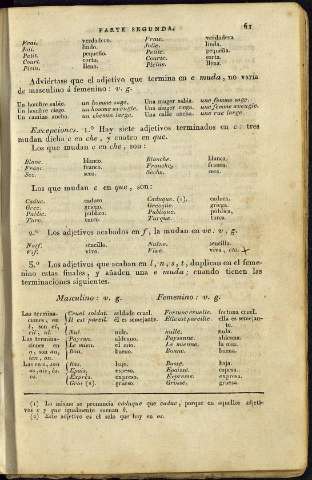 PARTE SEGUNDA. 61
Franc. verdadero. Franc. verdadera.
Joli. lindo. Jolie. linda.
Petit. pequeño. Petite. pequeña.
Court. corto. Courte. corta.
Plein. lleno. Pleine. llena.
Adviértase que el adjetivo que termina en e muda, no varía
de masculino á femenino: v. g.
Un hombre sabio. un homme sage. Una muger sabia. une femme sage.
Un hombre ciego. un homme aveugle. Una muger ciega. une femme aveugle.
Un camino ancho. un chemin large. Una calle ancha. une rue large.
Excepciones. 1.º Hay siete adjetivos terminados en c: tres
mudan dicha c en che, y cuatro en que.
Los que mudan c en che, son:
Blanc. blanco. Blanche. blanca.
Franc. franco. Franche. franca.
Sec. seco. Seche. seca.
Los que mudan c en que, son:
Caduc. caduco. Caduque. (1). caduca.
Grec. griego. Grecque. griega.
Public. público. Publique. pública.
Turc. turco. Turque. turca.
2.º Los adjetivos acabados en f, la mudan en ve: v. g.
Naïf. sencillo. Naïve. sencilla.
Vif. vivo. Vive. viva, etc.
3.º Los adjetivos que acaban en l, n, s, t, duplican en el feme-
nino estas finales, y añaden una e muda; cuando tienen las
terminaciones siguientes.
Masculino: v. g. Femenino: v. g.
Las termina- Cruel soldat. soldado cruel. Fortune cruelle. fortuna cruel.
ciones, en Il est pareil. él es semejante. Elle est pareille. ella es semejan-
Nul. nulo. Nulle. nula.
Las termina- Paysan. aldeano. Paysanne. aldeana.
ciones en Le mien. el mio. La mienne. la mia.
Bon. bueno. Bonne. buena.
Bas. bajo. Basse. baja.
Epais. espeso. Epaisse. espesa.
Exprès. expreso. Expresse. expresa.
Gros (2). grueso. Grosse. gruesa.
(1) Lo mismo se pronuncia caduque que caduc, porque en aquellos adjeti-
vos c y que igualmente suenan k.
(2) Este adjetivo es el solo que hay en os.